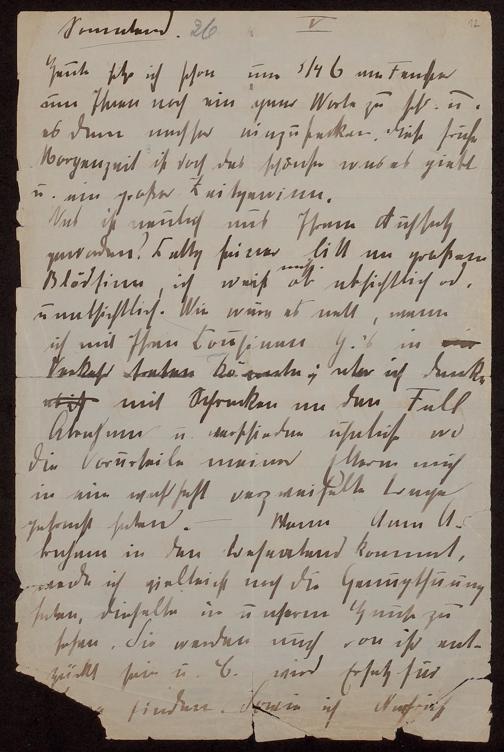 Sonnabend. 26 V 12
Heute sitze ich schon um 3/4 6 am Fenster
um Ihnen noch ein paar Worte zu
es dann nachher einzustecken. Diese frühe
Morgenzeit ist doch das schönste was es giebt
u. ein großer Zeitgewinn.
Was ist neulich aus Ihrem Aufsatz
geworden? litt an großem
Blödsinn, ich weiß nicht ob absichtlich od.
unabsichtlich. Wie wäre es nett, wenn
ich mit Ihren Cousinen G.'s in
Verkehr treten könnte; aber ich denke
mit Schrecken an den Fall
Abraham u. verschiedene ähnliche wo
die Vorurteile meiner Eltern mich
in eine wahrhaft verzweifelte Lage
gebracht haben. — Wenn Anna A-
braham in den kommt,
werde ich vielleicht noch die Genugthuung
haben, dieselbe in unserem Hause zu
sehen. Sie werden auch von ihr ent-
zückt sein u. C. wird Ersatz für
finden. Sowie ich